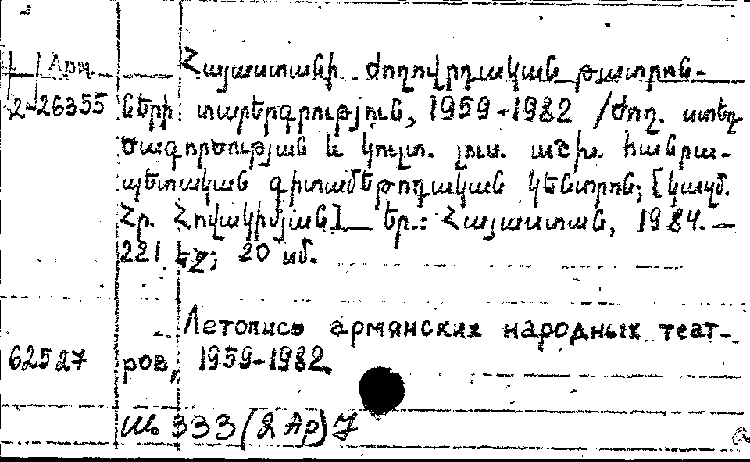 Հայաստանի ժողովրդական թատրոն-
2-26355 ների տարեգրություն, 1959-1982 /Ժող. ստեղ
ծագործության և կուլտ. լուս. աշխ. հանրա-
պետական գիտամեթոդական կենտրոն; [կազմ.
Հր. Հովակիմյան]. — Եր.: Հայաստան, 1984. —
221 էջ; 20 սմ.
Летопись армянских народных теат-
62527 ров, 1959-1982.
333(2Ар)7